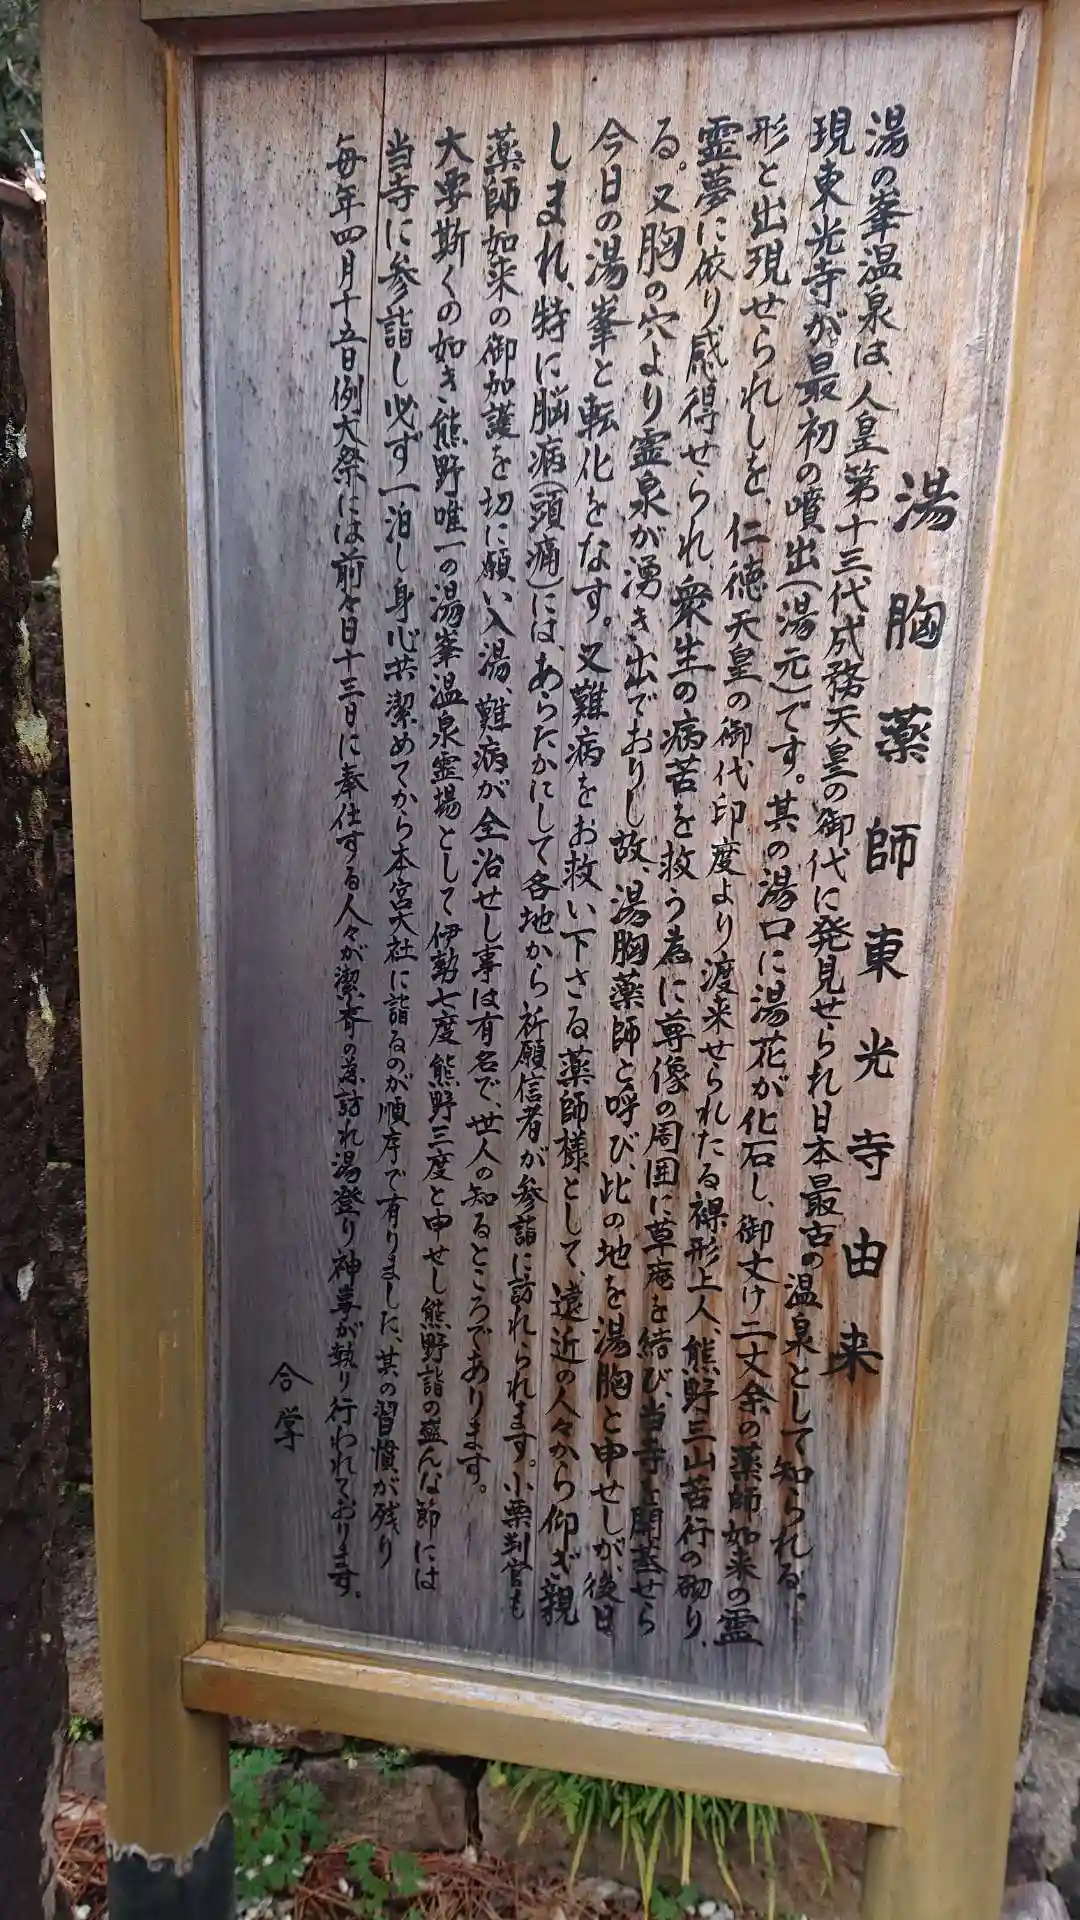 湯胸薬師東光寺由来
湯の峯温泉は、人皇第十三代成務天皇の御代に発見せられ日本最古の温泉として知られる。
現東光寺が最初の噴出(湯元)です。其の湯口に湯花が化石し、御丈け二丈余の薬師如来の霊
形と出現せられしを、仁徳天皇の御代印度より渡来せられたる裸形上人、熊野三山苦行の砌り、
霊夢に依り感得せられ衆生の病苦を救う為に尊像の周囲に草庵を結び、当寺を開基せら
る。又胸の穴より霊泉が湧き出でおりし故、湯胸薬師と呼び、比の地を湯胸と申せしが後日
今日の湯峯と転化をなす。又難病をお救い下さる薬師様として、遠近の人々から仰ぎ親
しまれ、特に脳病(頭痛)には、あらたかにして各地から祈願信者が参詣に訪れられます。小栗判官も
薬師如来の御加護を切に願い入湯、難病が全治せし事は有名で、世人の知るところであります。
大要斯くの如き熊野唯一の湯峯温泉霊場として伊勢七度熊野三度と申せし熊野詣の盛んな節には
当寺に参詣し必ず一泊し身心共潔めてから本宮大社に詣るのが順序で有りました、其の習慣が残り
毎年四月十五日例大祭には前々日十三日に奉仕する人々が潔斉の為訪れ湯登り神事が執り行われております。
合掌